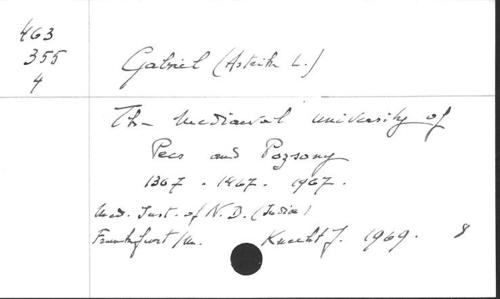 463
355
4
Gabriel (Astrik L.)
The Mediaeval University of
Pecs and Pozsony
1367. 1467. 1967.
Med. Inst. of N. D. (India)
Frankfurt/M. Knecht J. 1969. 8